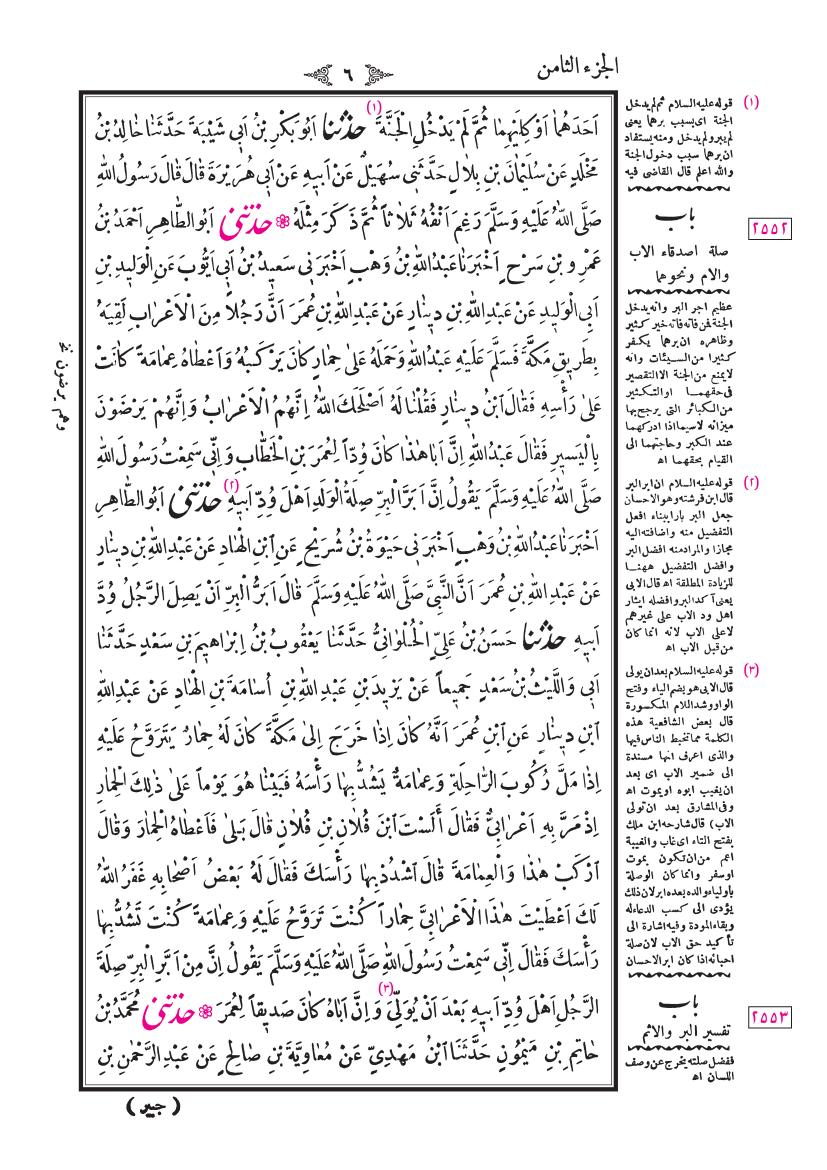 الجزء الثامن
٦
اَحَدَهُمَا اَوْ كِلَيْهِمَا ثُمَّ لَمْ يَدْخُلِ الْجَنَّةَ (١) حَدَّثَنَا اَبُو بَكْرِ بْنُ اَبِي شَيْبَةَ حَدَّثَنَا خَالِدُ بْنُ
مَخْلَدٍ عَنْ سُلَيْمَانَ بْنِ بِلَالٍ حَدَّثَنِي سُهَيْلٌ عَنْ اَبِيهِ عَنْ اَبِي هُرَيْرَةَ قَالَ قَالَ رَسُولُ اللّٰهِ
صَلَّى اللّٰهُ عَلَيْهِ وَسَلَّمَ رَغِمَ اَنْفُهُ ثَلَاثًا ثُمَّ ذَكَرَ مِثْلَهُ ❁ حَدَّثَنِي اَبُو الطَّاهِرِ اَحْمَدُ بْنُ
عَمْرِو بْنِ سَرْحٍ اَخْبَرَنَا عَبْدُ اللّٰهِ بْنُ وَهْبٍ اَخْبَرَنِي سَعِيدُ بْنُ اَبِي اَيُّوبَ عَنِ الْوَلِيدِ بْنِ
اَبِي الْوَلِيدِ عَنْ عَبْدِ اللّٰهِ بْنِ دِينَارٍ عَنْ عَبْدِ اللّٰهِ بْنِ عُمَرَ اَنَّ رَجُلًا مِنَ الْاَعْرَابِ لَقِيَهُ
بِطَرِيقِ مَكَّةَ فَسَلَّمَ عَلَيْهِ عَبْدُ اللّٰهِ وَحَمَلَهُ عَلَى حِمَارٍ كَانَ يَرْكَبُهُ وَاَعْطَاهُ عِمَامَةً كَانَتْ
عَلَى رَأْسِهِ فَقَالَ ابْنُ دِينَارٍ فَقُلْنَا لَهُ اَصْلَحَكَ اللّٰهُ اِنَّهُمُ الْاَعْرَابُ وَاِنَّهُمْ يَرْضَوْنَ
بِالْيَسِيرِ فَقَالَ عَبْدُ اللّٰهِ اِنَّ اَبَا هٰذَا كَانَ وُدًّا لِعُمَرَ بْنِ الْخَطَّابِ وَاِنِّي سَمِعْتُ رَسُولَ اللّٰهِ
صَلَّى اللّٰهُ عَلَيْهِ وَسَلَّمَ يَقُولُ اِنَّ اَبَرَّ الْبِرِّ صِلَةُ الْوَلَدِ اَهْلَ وُدِّ اَبِيهِ (٢) حَدَّثَنِي اَبُو الطَّاهِرِ
اَخْبَرَنَا عَبْدُ اللّٰهِ بْنُ وَهْبٍ اَخْبَرَنِي حَيْوَةُ بْنُ شُرَيْحٍ عَنِ ابْنِ الْهَادِ عَنْ عَبْدِ اللّٰهِ بْنِ دِينَارٍ
عَنْ عَبْدِ اللّٰهِ بْنِ عُمَرَ اَنَّ النَّبِيَّ صَلَّى اللّٰهُ عَلَيْهِ وَسَلَّمَ قَالَ اَبَرُّ الْبِرِّ اَنْ يَصِلَ الرَّجُلُ وُدَّ
اَبِيهِ حَدَّثَنَا حَسَنُ بْنُ عَلِيٍّ الْحُلْوَانِيُّ حَدَّثَنَا يَعْقُوبُ بْنُ اِبْرَاهِيمَ بْنِ سَعْدٍ حَدَّثَنَا
اَبِي وَاللَّيْثُ بْنُ سَعْدٍ جَمِيعًا عَنْ يَزِيدَ بْنِ عَبْدِ اللّٰهِ بْنِ اُسَامَةَ بْنِ الْهَادِ عَنْ عَبْدِ اللّٰهِ
ابْنِ دِينَارٍ عَنِ ابْنِ عُمَرَ اَنَّهُ كَانَ اِذَا خَرَجَ اِلَى مَكَّةَ كَانَ لَهُ حِمَارٌ يَتَرَوَّحُ عَلَيْهِ
اِذَا مَلَّ رُكُوبَ الرَّاحِلَةِ وَعِمَامَةٌ يَشُدُّ بِهَا رَأْسَهُ فَبَيْنَا هُوَ يَوْمًا عَلَى ذٰلِكَ الْحِمَارِ
اِذْ مَرَّ بِهِ اَعْرَابِيٌّ فَقَالَ اَلَسْتَ ابْنَ فُلَانِ بْنِ فُلَانٍ قَالَ بَلَى فَاَعْطَاهُ الْحِمَارَ وَقَالَ
ارْكَبْ هٰذَا وَالْعِمَامَةَ قَالَ اشْدُدْ بِهَا رَأْسَكَ فَقَالَ لَهُ بَعْضُ اَصْحَابِهِ غَفَرَ اللّٰهُ
لَكَ اَعْطَيْتَ هٰذَا الْاَعْرَابِيَّ حِمَارًا كُنْتَ تَرَوَّحُ عَلَيْهِ وَعِمَامَةً كُنْتَ تَشُدُّ بِهَا
رَأْسَكَ فَقَالَ اِنِّي سَمِعْتُ رَسُولَ اللّٰهِ صَلَّى اللّٰهُ عَلَيْهِ وَسَلَّمَ يَقُولُ اِنَّ مِنْ اَبَرِّ الْبِرِّ صِلَةَ
الرَّجُلِ اَهْلَ وُدِّ اَبِيهِ بَعْدَ اَنْ يُوَلِّيَ (٣) وَاِنَّ اَبَاهُ كَانَ صَدِيقًا لِعُمَرَ ❁ حَدَّثَنِي مُحَمَّدُ بْنُ
حَاتِمِ بْنِ مَيْمُونٍ حَدَّثَنَا ابْنُ مَهْدِيٍّ عَنْ مُعَاوِيَةَ بْنِ صَالِحٍ عَنْ عَبْدِ الرَّحْمٰنِ بْنِ
( جبير )
وهم يرضون نخ
(١) قوله عليه السلام ثم لم يدخل
الجنة اى بسبب برهما يعنى
لم يبر ولم يدخل ومنه يستفاد
ان برهما سبب دخول الجنة
والله اعلم قال القاضى فيه
باب
٢٥٥٢
صلة اصدقاء الاب
والام ونحوهما
عظيم اجر البر وانه يدخل
الجنة فمن فاته فاته خير كثير
وظاهره ان برهما يكفر
كثيرا من السيئات وانه
لا يمنع من الجنة الا التقصير
فى حقهما او التكثير
من الكبائر التى يرجح بها
ميزانه لاسيما اذا ادركهما
عند الكبر وحاجتهما الى
القيام بحقهما اه
(٢) قوله عليه السلام ان ابر البر
قال ابن فرشته وهو الاحسان
جعل البر بارا ببناء افعل
التفضيل منه واضافته اليه
مجازا والمراد منه افضل البر
وافضل التفضيل ههنا
للزيادة المطلقة اه قال الابى
يعنى آكد البر وافضله ايثار
اهل ود الاب على غيرهم
لا على الاب لانه انما كان
من قبل الاب اه
(٣) قوله عليه السلام بعد ان يولى
قال الابى هو بضم الياء وفتح
الواو وشد اللام المكسورة
قال بعض الشافعية هذه
الكلمة مما تخبط الناس فيها
والذى اعرف انها مسندة
الى ضمير الاب اى بعد
ان يغيب ابوه او يموت اه
وفى المشارق بعد ان تولى
الاب) قال شارحه ابن ملك
بفتح التاء اى غاب والغيبة
اعم من ان تكون بموت
او سفر وانما كان الوصلة
باولياء والده بعده ابر لان ذلك
يؤدى الى كسب الدعاء له
وبقاء المودة وفيه اشارة الى
تأكيد حق الاب لان صلة
احبائه اذا كان ابر الاحسان
باب
٢٥٥٣
تفسير البر والاثم
ففضل صلته يخرج عن وصف
اللسان اه